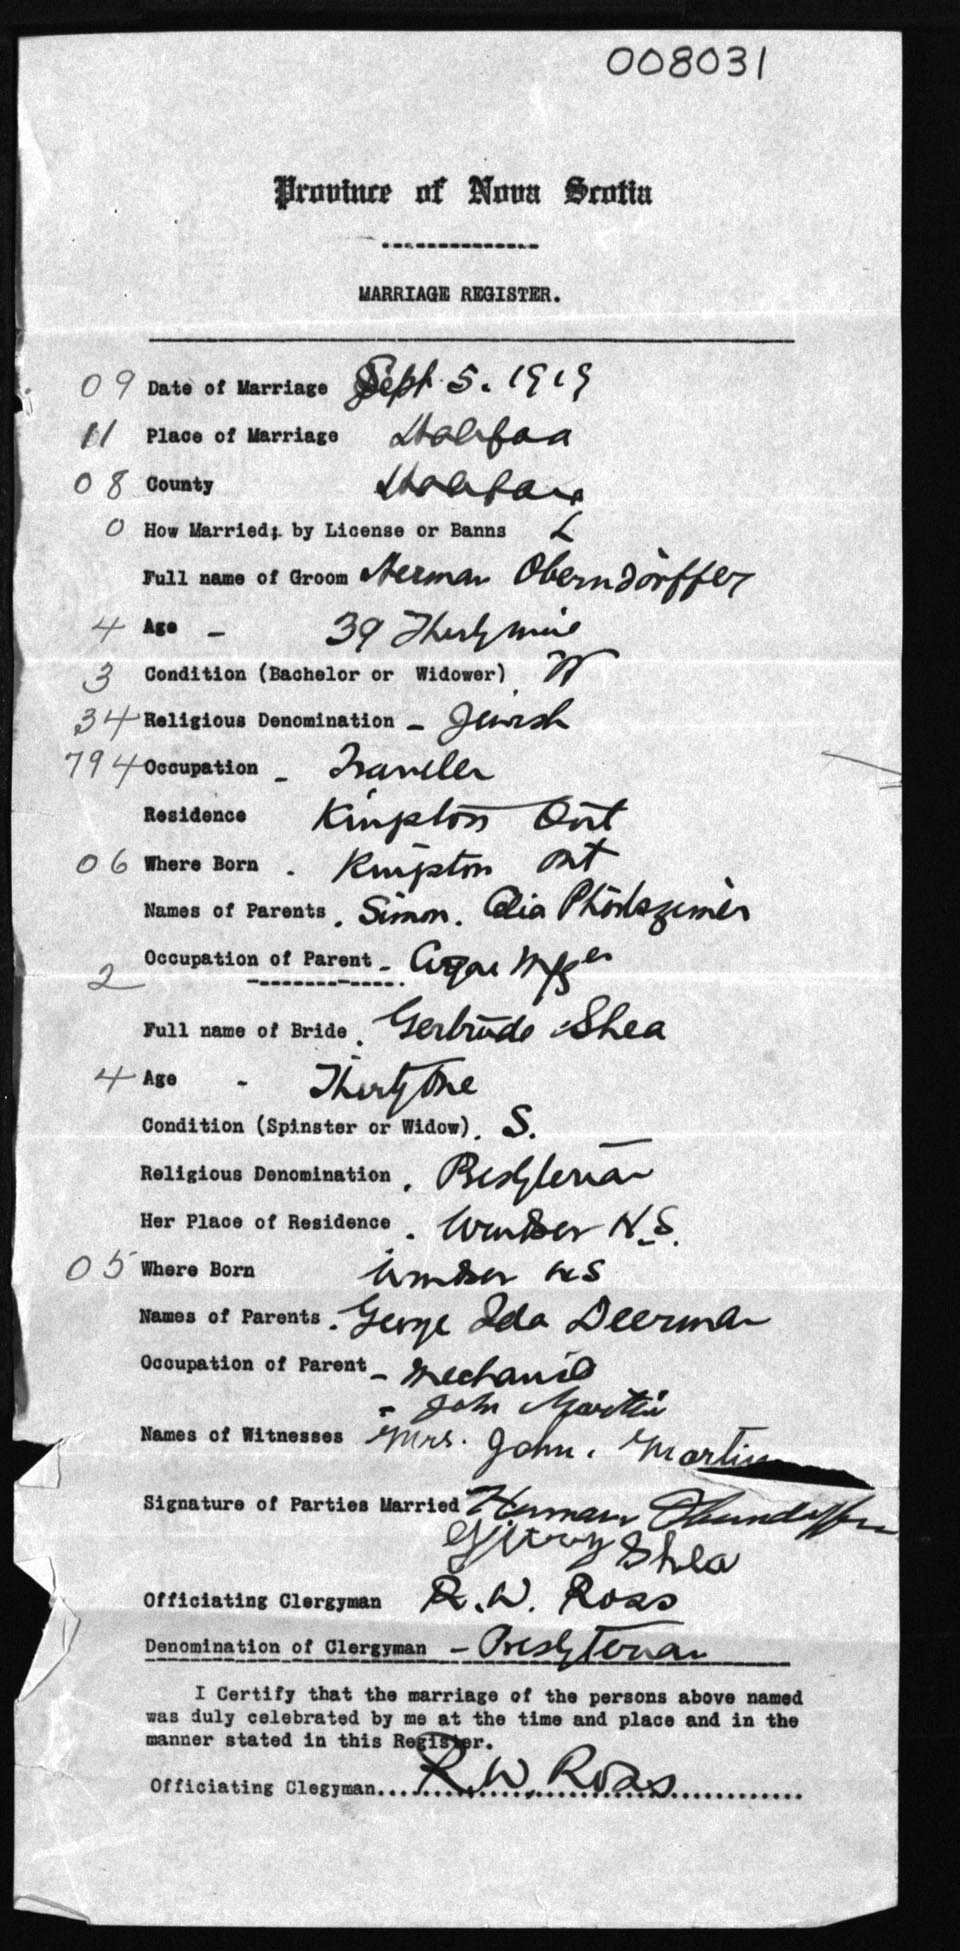 008031
Province of Nova Scotia
MARRIAGE REGISTER.
09 Date of Marriage Sept 5. 1919
11 Place of Marriage Halifax
08 County Halifax
0 How Married; by License or Banns L
Full name of Groom Herman Oberndörffer
4 Age - 39 Thirty nine
3 Condition (Bachelor or Widower) W
34 Religious Denomination - Jewish
794 Occupation - Traveller
Residence Kingston Ont
06 Where Born . Kingston Ont
Names of Parents . Simon. Celia
Occupation of Parent - Cigar Mfger
2
Full name of Bride . Gertrude Shea
4 Age - Thirty One
Condition (Spinster or Widow) . S.
Religious Denomination . Presbyterian
Her Place of Residence . Windsor N.S.
05 Where Born Windsor NS
Names of Parents . George Ida Deerman
Occupation of Parent - Mechanic
- John Martin
Names of Witnesses Mrs. John. Martin
Signature of Parties Married Herman Oberndorffer
Shea
Officiating Clergyman R. W. Ross
Denomination of Clergyman - Presbyterian
I Certify that the marriage of the persons above named
was duly celebrated by me at the time and place and in the
manner stated in this Register.
Officiating Clegyman.... R. W. Ross